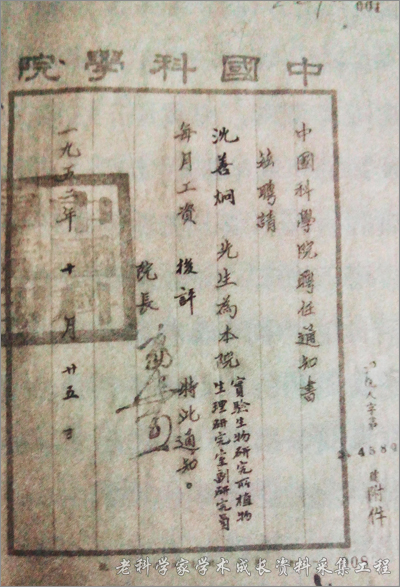 001
中國科學院
中國科學院聘任通知書
茲聘請
沈善炯 先生為本院實驗生物研究所植物
生理研究室副研究員
每月工資 後評 特此通知。
院長
一九五二年 十 月 廿五日
4580
附件
老科学家学术成长资料采集工程